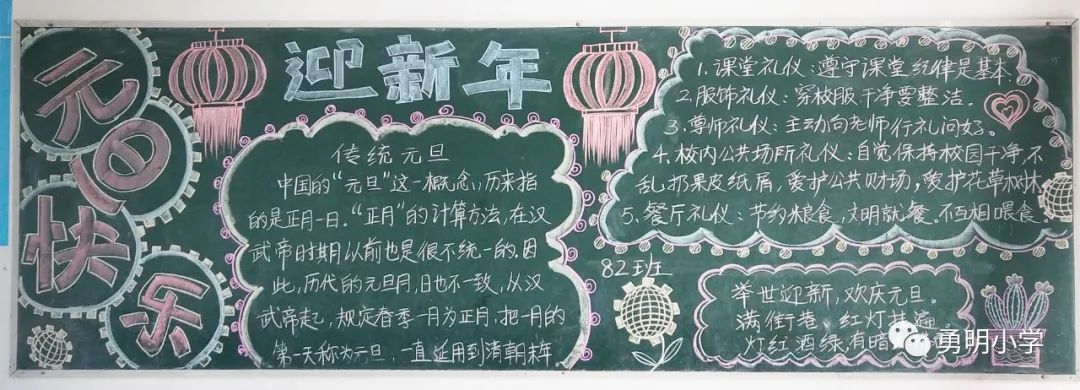 元旦快乐
迎新年
传统元旦
中国的“元旦”这一概念,历来指
的是正月一日。“正月”的计算方法,在汉
武帝时期以前也是很不统一的。因
此,历代的元旦月,日也不一致,从汉
武帝起,规定春季一月为正月,把一月的
第一天称为元旦,一直延用到清朝末年
1.课堂礼仪:遵守课堂纪律是基本
2.服饰礼仪:穿校服干净要整洁。
3.尊师礼仪:主动向老师行礼问好。
4.校内公共场所礼仪:自觉保持校园干净,不
乱扔果皮纸屑,爱护公共财场,爱护花草树林
5.餐厅礼仪:节约粮食,文明就餐。不互相喂食
82班
举世迎新,欢庆元旦。
满街巷、红灯
灯红酒绿有暗
勇明小学